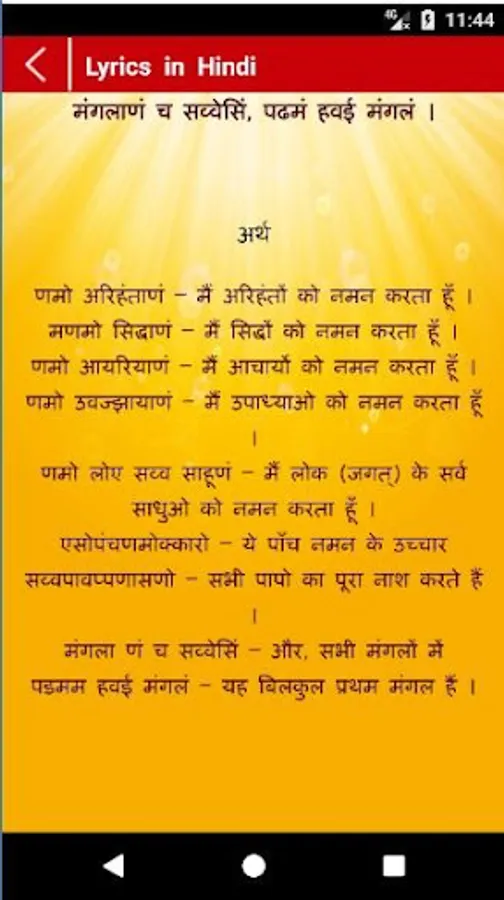 4G 11:44
Lyrics in Hindi
मंगलाणं च सव्वेसिं, पढमं हवई मंगलं ।
अर्थ
णमो अरिहंताणं – मैं अरिहंतों को नमन करता हूँ ।
मणमो सिद्धाणं – मैं सिद्धों को नमन करता हूँ ।
णमो आयरियाणं – मैं आचार्यो को नमन करता हूँ ।
णमो उवज्झायाणं – मैं उपाध्याओ को नमन करता हूँ
।
णमो लोए सव्व साहूणं – मैं लोक (जगत्) के सर्व
साधुओ को नमन करता हूँ ।
एसोपंचणमोक्कारो – ये पाँच नमन के उच्चार
सव्वपावप्पणासणो – सभी पापो का पूरा नाश करते हैं
।
मंगला णं च सव्वेसिं – और, सभी मंगलों में
पडमम हवई मंगलं – यह बिलकुल प्रथम मंगल हैं ।